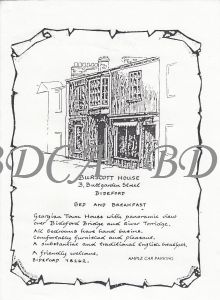 BURSCOTT HOUSE
3, Buttgarden Street
BIDEFORD
BED AND BREAKFAST
Georgian Town House with panoramic view
over Bideford Bridge and River Torridge.
All bedrooms have hand basins,
comfortably furnished and pleasant.
A substantial and traditional English breakfast,
A friendly welcome,
BIDEFORD 78262.
AMPLE CAR PARKING